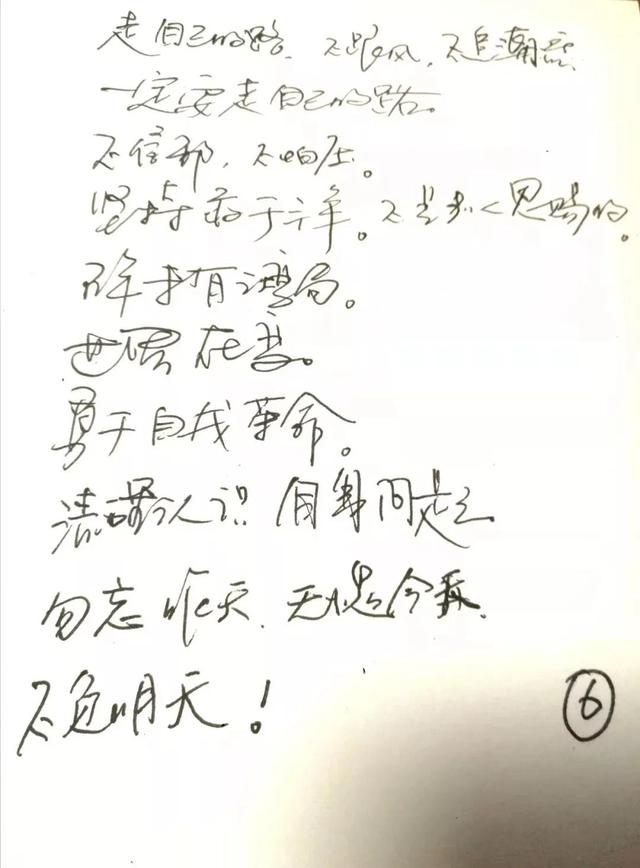 走自己的路、不跟风,不追潮流、
一定要走自己的路。
不信邪,不怕压。
坚持敢于斗争。不是别人恩赐的。
斗争才有满局。
世界在变。
勇于自我革命。
清醒认识自身问题、
勿忘昨天、无愧今天、
不负明天!
⑥